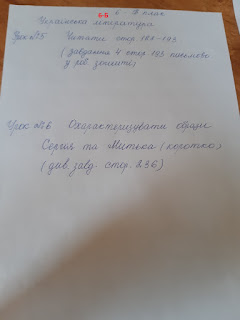 6-Б клас
Українська література
Урок №5 Читати стор. 187-193
(завдання 4 стор 193 письмово
у роб. зошиті)
Урок №6 Охарактеризувати образи
Сергія та Митька (коротко)
(див. завд. стор. 236)